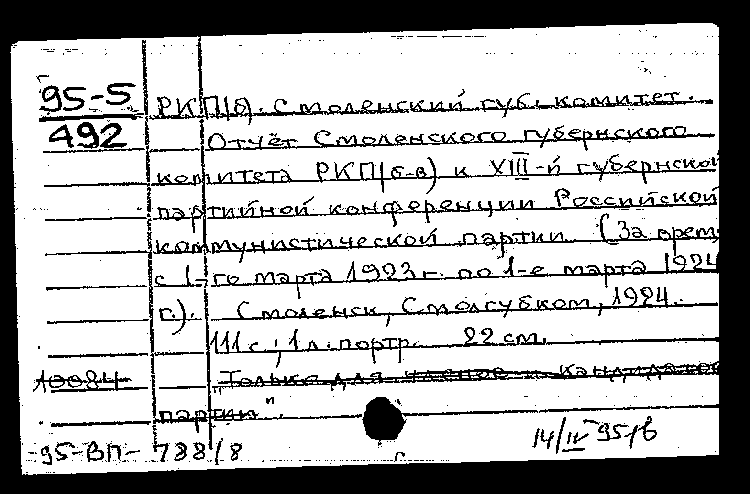 95-5
492
РКП(б). Смоленский губ. комитет.
Отчёт Смоленского губернского
комитета РКП(б-в) к XIII-й губернской
партийной конференции Российской
коммунистической партии (За врем
с 1-го марта 1923 г. по 1-е марта 1924
г.). Смоленск, Смолгубком, 1924.
111 с.; 1 л. портр. 22 см.
10084 "Только для членов и кандидатов
партии".
95-ВП-788/8
14/IV 95